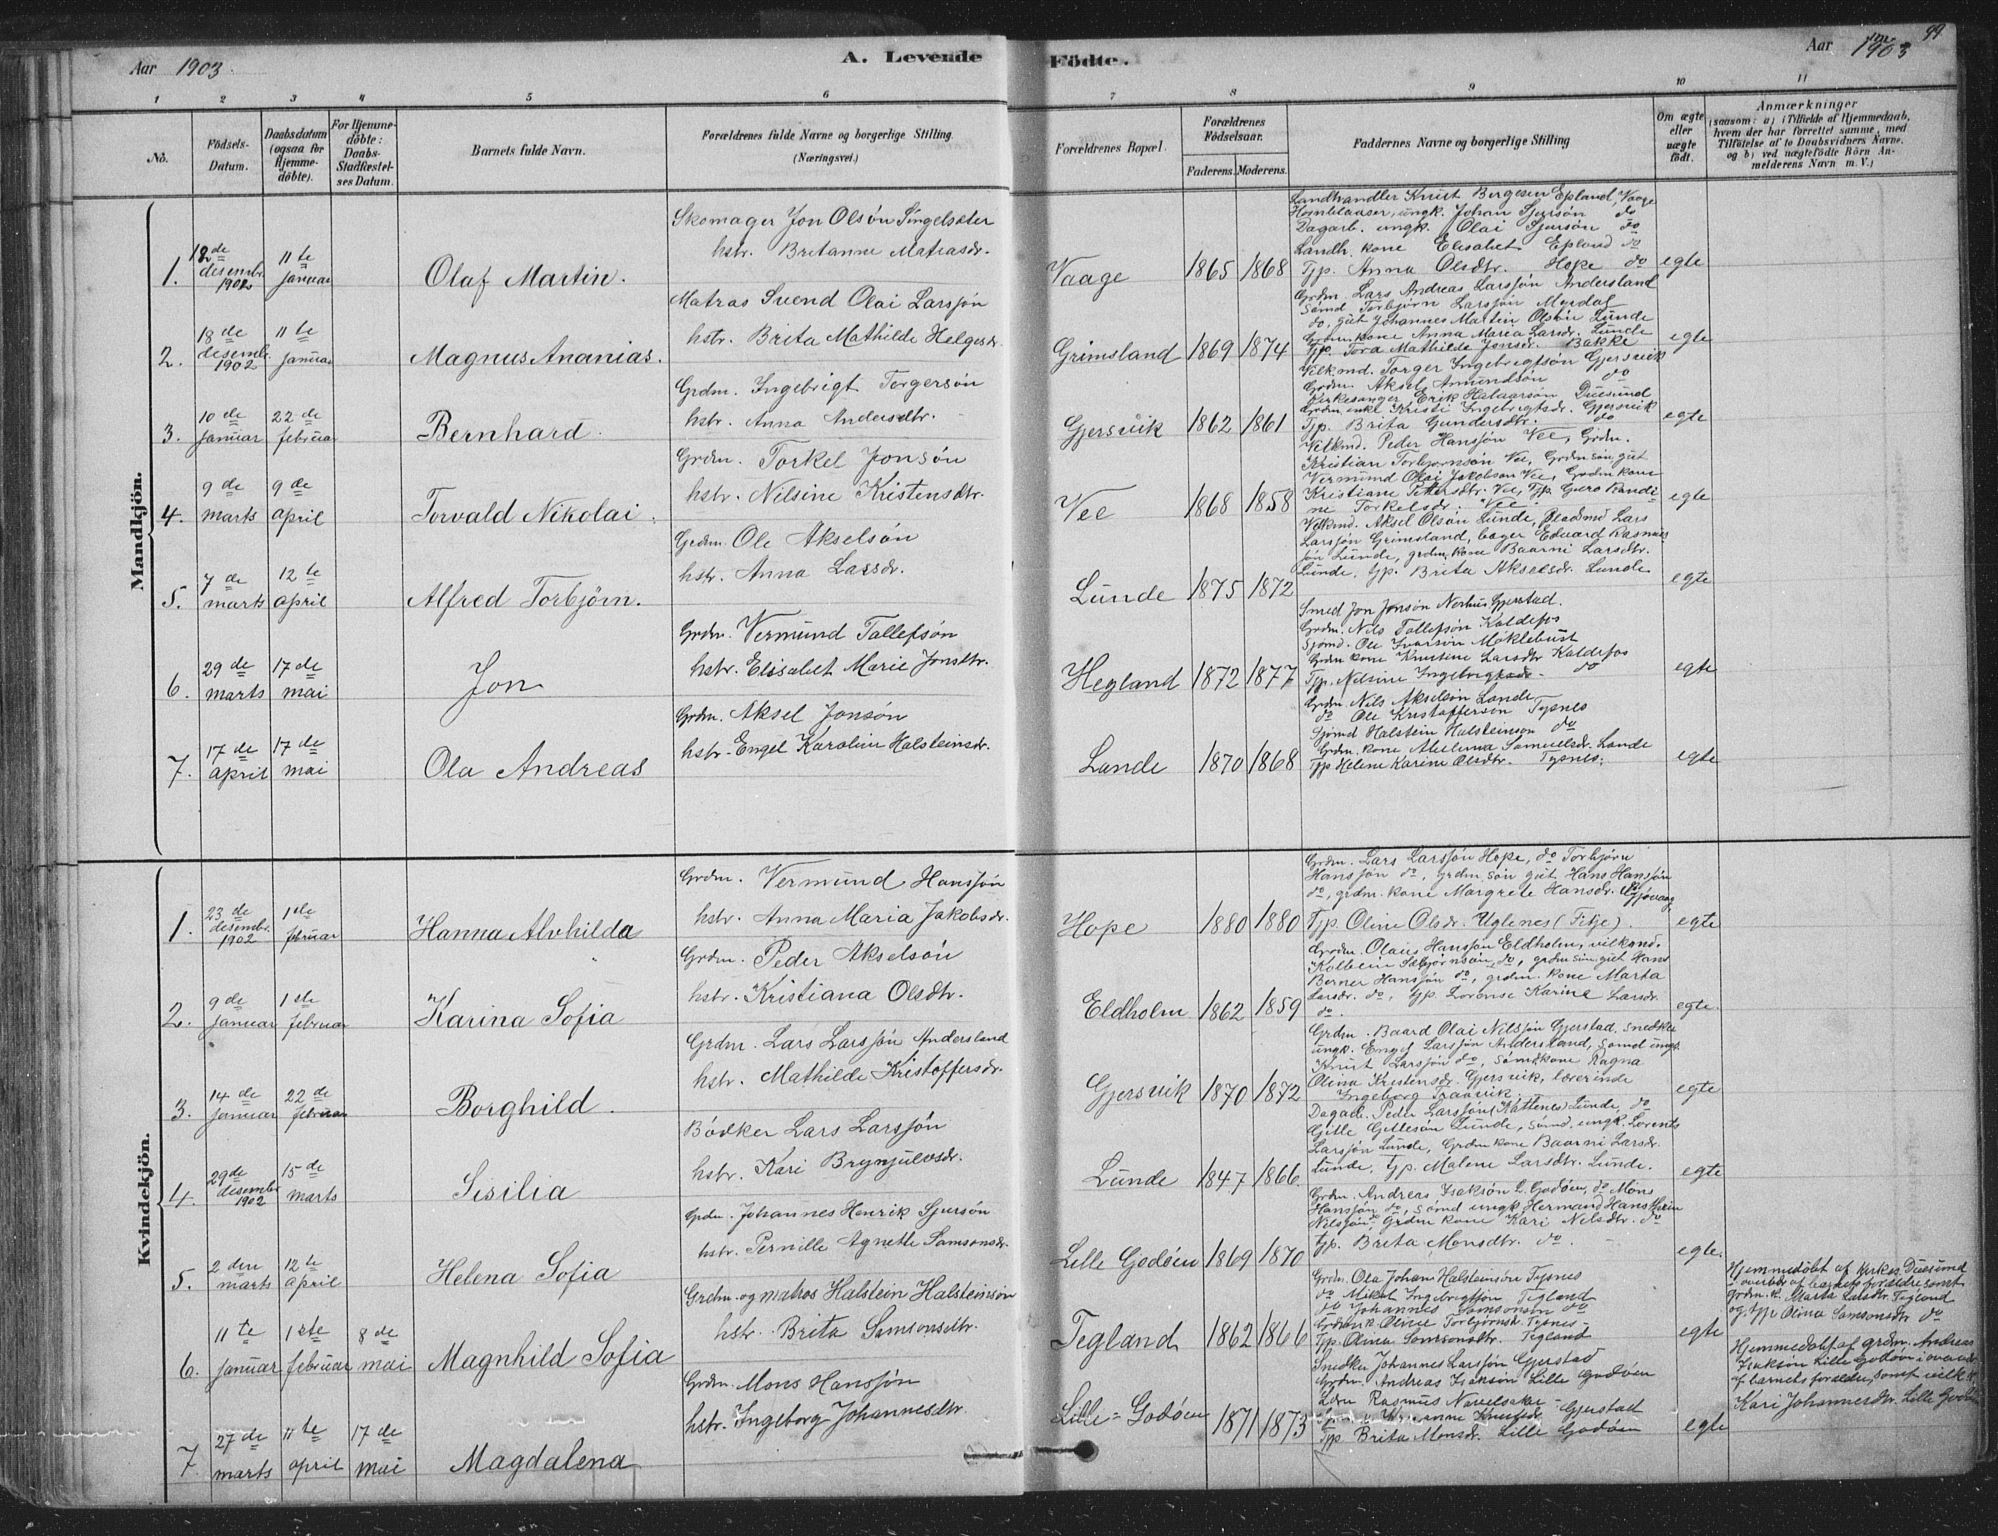 Aar 1903. A. Levende
Födte. Aar 1903 99
1 2 3 4 5 6
7 8 9 10 11
No. Födsels-Datum. Daabsdatum (ogsaa for Hjemme-döbte). For Hjemme-döbte: Daabs-Stadfæstel-ses Datum. Barnets fulde Navn. Forældrenes fulde Navne og borgerlige Stilling. (Næringsvei.)
Forældrenes Bopæl. Forældrenes Födselsaar. Faderens. Moderens. Faddernes Navne og borgerlige Stilling Om ægte eller uægte födt. Anmærkninger (saasom: a) i Tilfælde af Hjemmedaab, hvem der har forrettet samme, med Tilföielse af to Daabsvidners Navne, og b) ved uægtefödte Börn An-melderens Navn m. V.)
Mandkjön.
1. 12de desembr. 1902 11te januar Olaf Martin.
Skomager Jon Olsön Singelsæter
hstr. Britanne Matiasdr.
Vaage 1865 1868
Landhandler Knut Bergesen Epland, Vaage
ungk. Johan Sjursön do
Dagarb. ungk. Olai Sjursön do
Landh. kone Elisabet Epland do
Tjp. Anna Olsdtr. Hope do
egte
2. 18de desembr. 1902 11te januar Magnus Ananias.
Matros Svend Olai Larssön
hstr. Brita Mathilde Helgesdr.
Grimsland 1869 1874
Grdm. Lars Andreas Larssön Andersland
Sömd Torbjörn Larssön Myrdal
do, gut Johannes Martin Olsön Lunde
Grdm. kone Anna Maria Larsdr. Lunde
Tjp. Tora Mathilde Jonsdr. Bakke
egte
3. 10de januar 22de februar Bernhard.
Grdm. Ingebrigt Torgersön
hstr. Anna Andersdtr.
Gjersvik 1862 1861
Vilkmd. Torger Ingebrigtsön Gjersvik
Grdm. Aksel Amundsön do
Kirkesanger Erik Duesund
Grdm. enke Kristi Ingebrigtsdr. Gjersvik
Tjp. Brita Gundersdtr. do
egte
4. 9de marts 9de april Torvald Nikolai.
Grdm. Torkel Jonsön
hstr. Nilsine Kristensdtr.
Vee 1868 1858
Vilkmd. Peder Hanssön Vee, Grdm.
Kristian Torbjörnsön Vee, Grdm sön, gut
Vermund Olai Jakobson Vee, Grdm kone
Kristiane Pettersdtr. Vee, Tjp. Guro Randi-
ne Torkelsdr. Vee.
egte
5. 7de marts 12te april Alfred Torbjörn.
Grdm. Ole Akselsön
hstr. Anna Larsdr.
Lunde 1875 1872
Vilkmd. Aksel Olsön Lunde, Pladsmd Lars
Larssön Grimsland, bager Eduard Rasmus
sön Lunde, grdm. kone Baarni Larsdtr.
Lunde, tjp. Brita Akselsdr. Lunde
egte
6. 29de marts 17de mai Jon
Grdm. Vermund Tollefsön
hstr. Elisabet Marie Jonsdtr.
Hegland 1872 1877
Smed Jon Jonsön Norhus Gjerstad.
Grdm. Nils Tollefsön Kaldefos
Sjömd. Ole Ivarsön Möklebust
Grdm kone Kristine Larsdtr Kaldefos
Tjp. Nelsine Ingebrigtsdr. do
egte
7. 17de april 17de mai Ola Andreas
Grdm. Aksel Jonsön
hstr. Engel Karoline Halsteinsdr.
Lande 1870 1868
Grdm. Nils Akselsön Lande
do Ole Kristoffersön Tysnes
Sjömd Halstein Halsteinsön do
Grdm. kone Samuelsdr. Lande
Tjp Helene Karine Olsdtr. Tysnes.
egte
Kvindekjön.
1. 23de desembr. 1902 1ste februar Hanna Alvhilda
Grdm. Vermund Hanssön
hstr. Anna Maria Jakobsdr.
Hope 1880 1880
Grdm. Lars Larssön Hope, do Torbjörn
Hanssön do, grdm. sön gut Hans Hanssön
do, grdm. kone Margrete Hansdr.
Tjp. Oline Olsdr. Uglenes (Fitje).
egte
2. 9de januar 1ste februar Karina Sofia
Grdm. Peder Akselsön
hstr. Kristiana Olsdtr.
Eldholm 1862 1859
Grdm. Olai Hanssön Eldholm, vilkmd.
Kolbein do, grdm sön gut Hans
Berner Hanssön do, grdm. kone Marta
Larsdr. do, tjp. Lorense Karine Larsdr.
do.
egte.
3. 14de januar 22de februar Borghild.
Grdm. Lars Larssön Andersland
hstr. Mathilde Kristoffersdr.
Gjersvik 1870 1872
Grdm. Baard Olai Nilssön Gjerstad, snedker
ungk. Engel Larssön Andersland, sömd ungk.
Knut Larssön do, sömdkone Ragna
Olina Kristensdr. Gjersvik, lærerinde
Ingeborg Traavik
egte
4. 29de desembr 1902 15de marts Sisilia
Bödker Lars Larssön
hstr. Kari Brynjulvsdr.
Lunde 1847 1866.
Dagarb. Peder Larssön (Kattenes) Lunde, do
Gitle Gitlesön Lunde, sömd ungk. Lorents
Larssön Lunde, Grdm kone Baarni Larsdr.
Lunde, Tjp. Malene Larsdtr. Lunde.
egte
5. 2den marts 12te april Helena Sofia
Grdm. Johannes Henrik Sjursön
hstr. Pernille Agnette Samsonsdr.
Lille Godöen 1869 1870
Grdm. Andreas Isaksön L. Godöen, do Mons
Hanssön do, sömd ungk Herman Hans
Nilssön do, Grdm kone Kari Nilsdtr. do
tjp. Brita Monsdtr. do.
egte.
6. 11te januar 1ste februar 8de mai Magnhild Sofia
Grdm. og matros Halstein Halsteinsön
hstr. Brita Samsonsdtr.
Tegland 1862 1866
Grdm. Ola Johan Halsteinsön Tysnes
do Mikal Ingebrigtsön Tegland
do Johannes Samsonsön do
Grdm k. Oline Torbjörnsdr. Tysnes
Tjp. Olina Samsonsdtr. Tegland
egte
Hjemmedöbt af kirkes. Duesund
i overvær af barnets forældre samt
Grdm. k. Marta Larsdtr. Tegland
og tjp Olina Samsonsdtr do
7. 27de marts 11te april 17de mai Magdalena
Grdm. Mons Hanssön
hstr. Ingeborg Johannesdtr.
Lille-Godöen 1871 1873
Snedker Johannes Larssön Gjerstad
Grdm. Andreas Isaksön Lille Godöen
Rasmus
Knutsdr Gjerstad
Tjp Brita Monsdr. Lille Godöen
egte
Hjemmedöbt af grdm. Andreas
Isaksön Lille Godöen i overvær
af barnets forældre, samt vilk. k.
Kari Johannesdtr. Lille Godöen